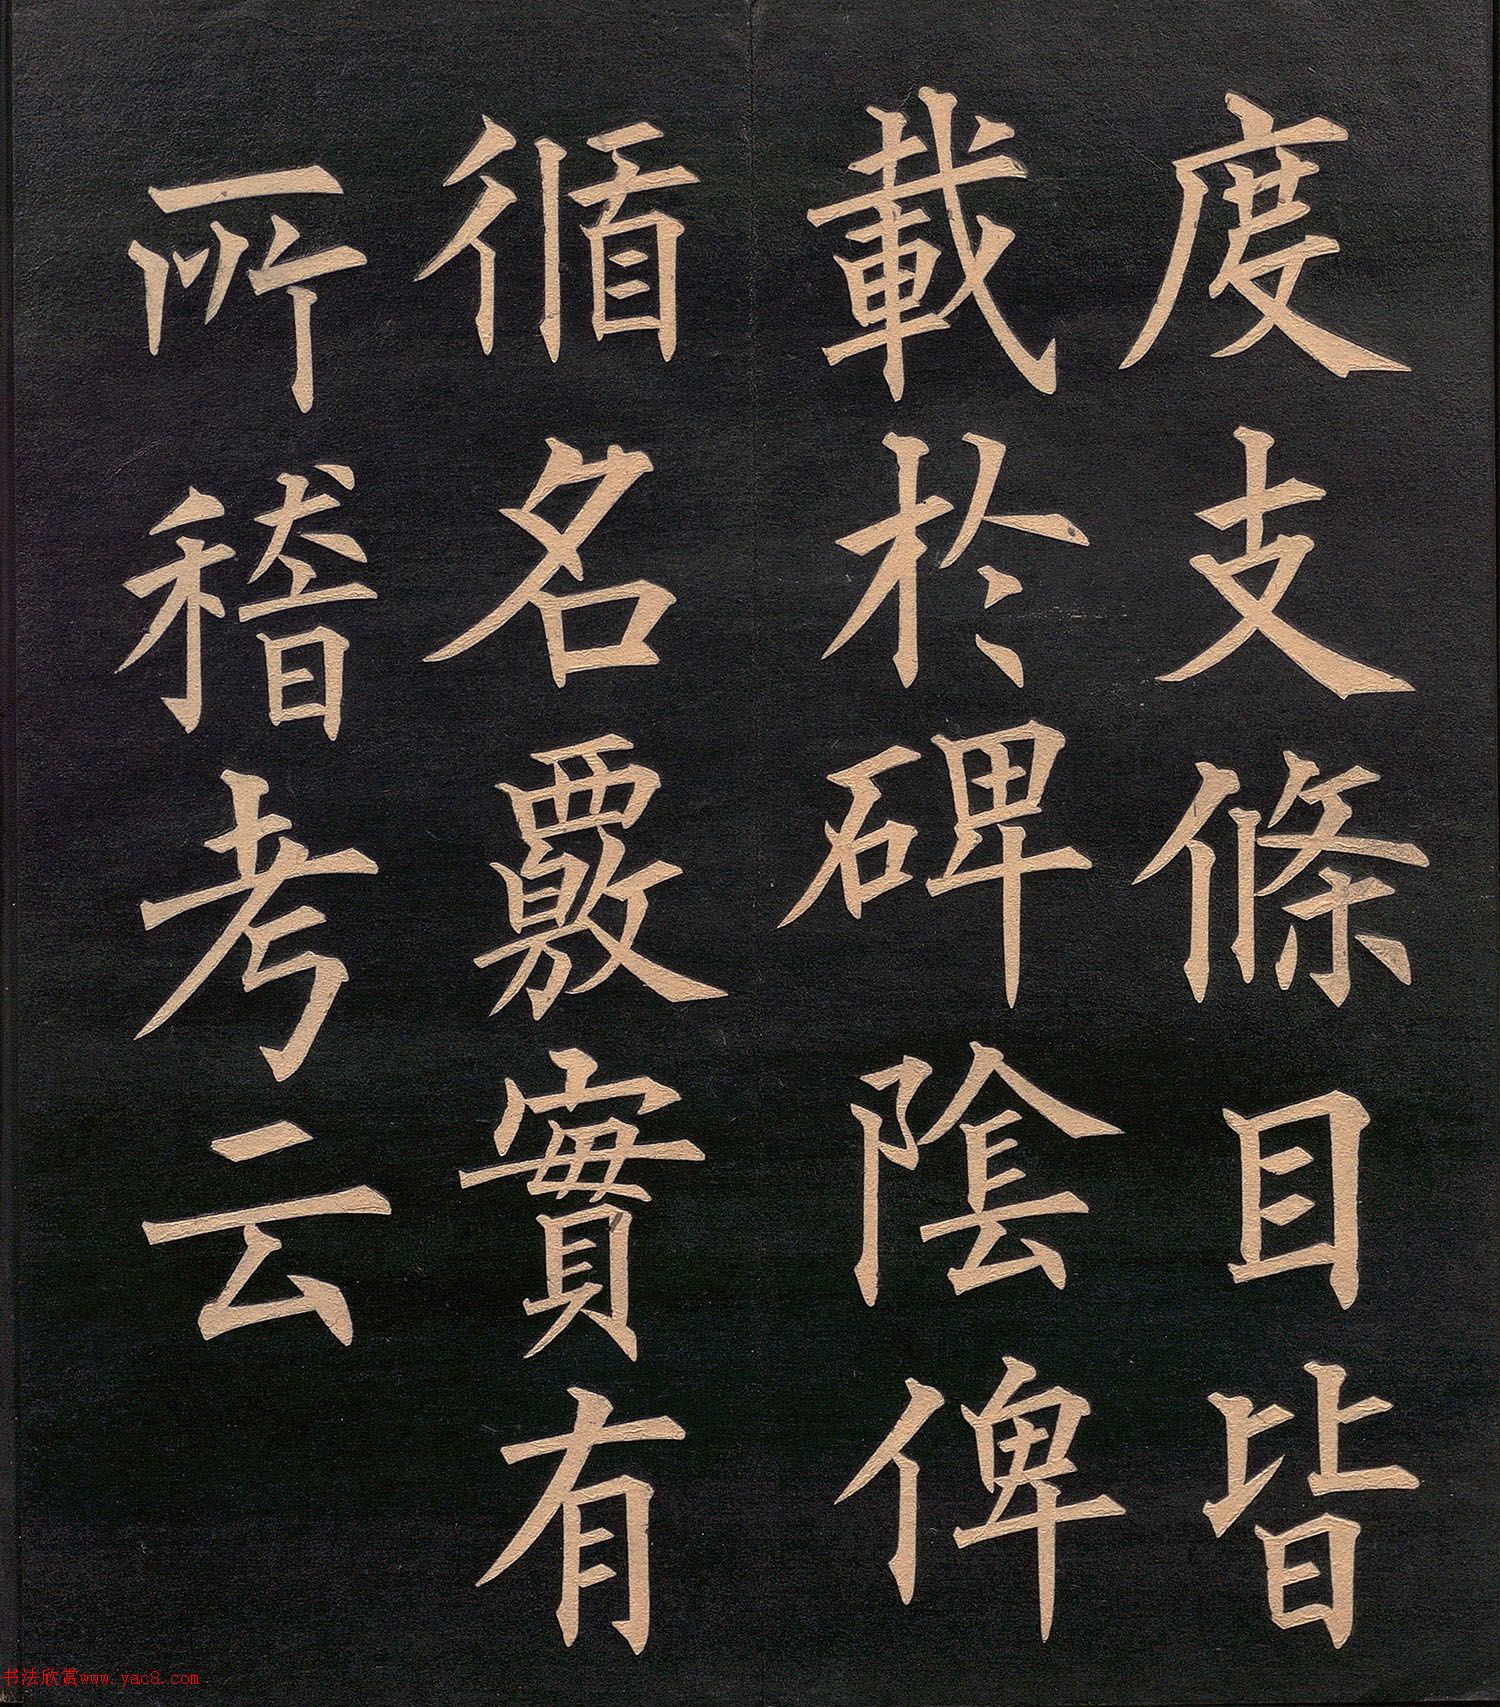 度支條目皆
載於碑陰俾
循名覈實有
所稽考云
书法欣赏www.yac8.com